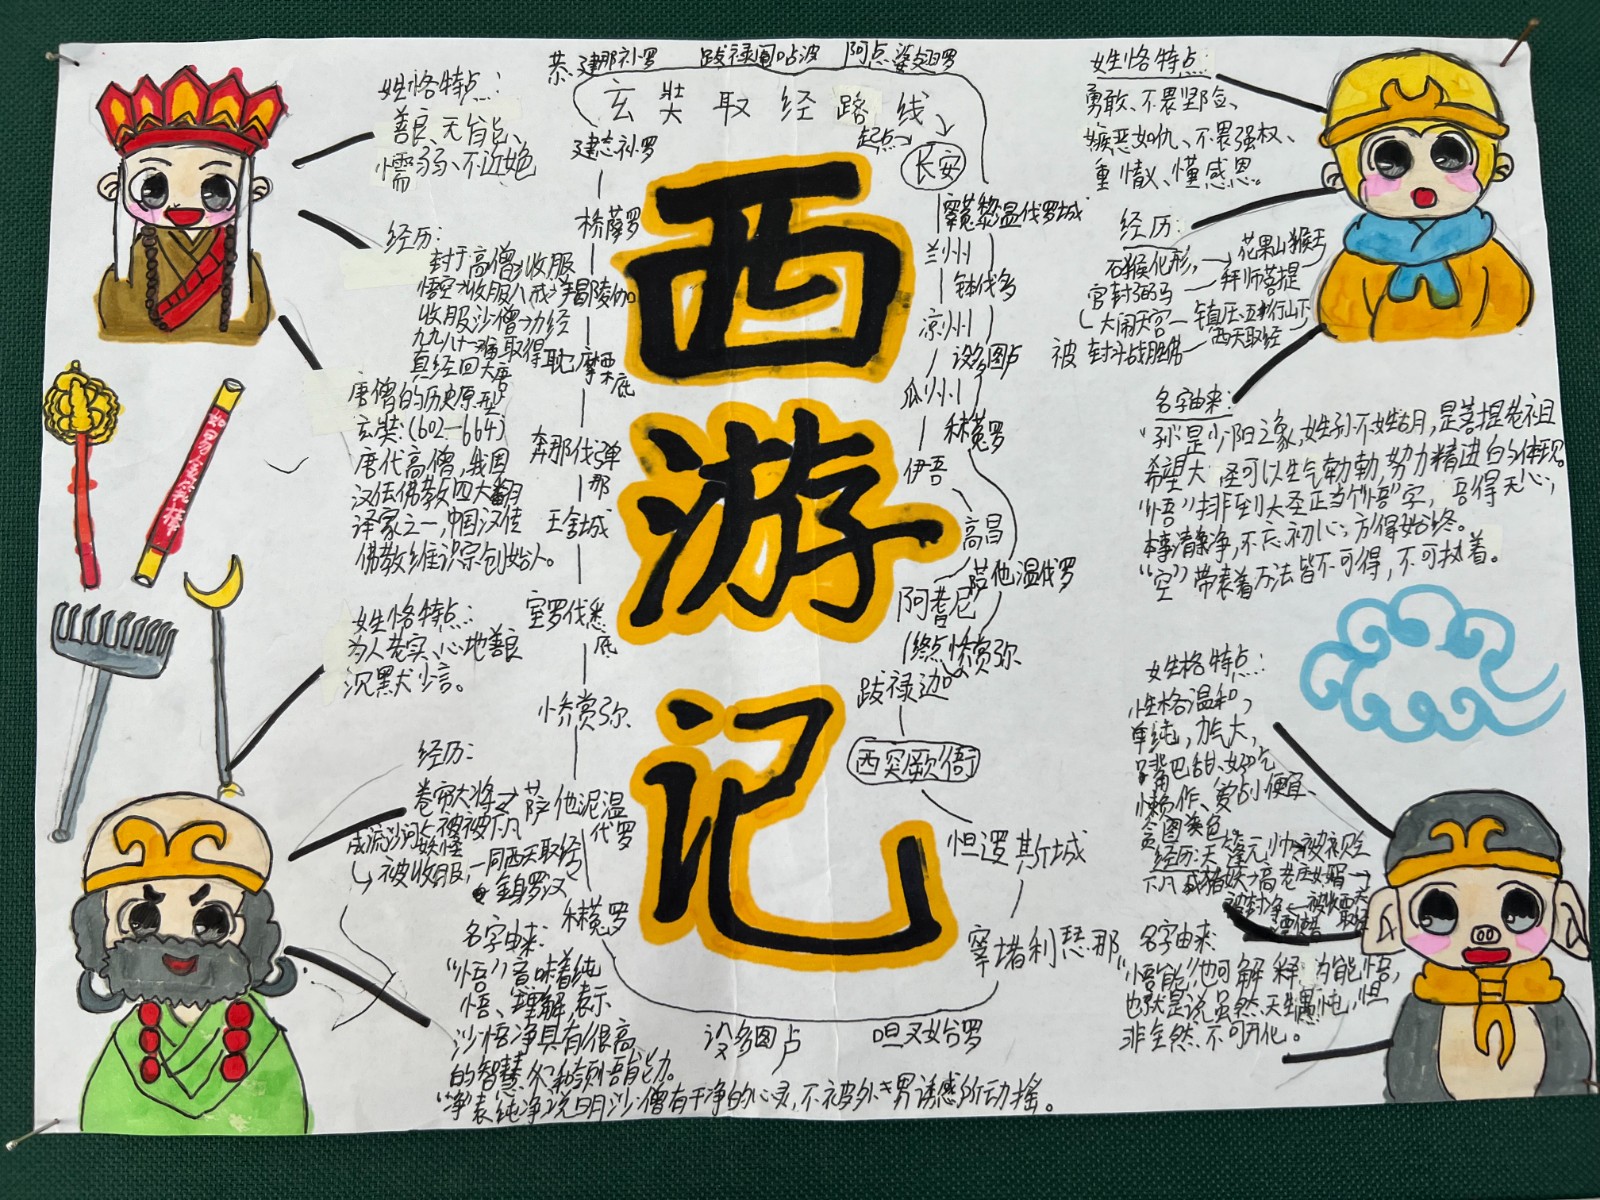 西游记
玄奘取经路线
起点
长安
兰州
凉州
瓜州
伊吾
高昌
阿耆尼
(终点 憍赏弥
跋禄迦
西突厥衙
怛逻斯城
窣堵利瑟那
呾叉始罗
设多图卢
秣菟罗
萨他泥湿
伐罗
憍赏弥
室罗伐悉
底
王舍城
奔那伐弹
那
耽摩栗底
羯陵伽
建志补罗
恭建那补罗
跋禄羯呫婆
钵伐多
设多图卢
秣菟罗
萨他湿伐罗
姓恪特点:
善良、无能、
懦弱、不近她
经历:
封于高僧→收服
悟空→收服八戒→
收服沙僧→历经
九九八十一难→取得
真经回大唐
唐僧的历史原型
玄奘:(602—664)
唐代高僧,我国
汉传佛教四大翻
译家之一,中国汉传
佛教维识宗创始人。
如意金箍棒
姓恪特点:
为人老实、心地善良
沉默少言。
经历:
卷帘大将→被下凡
成流沙河妖怪
→被收服,一同西天取经
金身罗汉
名字由来:
“悟”意味着纯
悟、理解,表示
沙悟净具有很高
的智慧和领悟能力。
“净”表纯净说明沙僧有干净的心灵,不被外界诱惑所动摇。
姓恪特点:
勇敢、不畏坚险、
嫉恶如仇、不畏强权、
重情义、懂感恩。
经历:
石猴化形,→花果山猴王
拜师菩提
官封弼马
大闹天宫—镇压五行山下
西天取经
被封斗战胜佛
名字由来:
“孙”是少阳之象,姓孙不姓胡,是菩提老祖
希望大圣可以生气勃勃,努力精进的体现。
“悟”排到大圣正当个“悟”字,吾得无心,
本事清静净,不忘初心,方得始终。
“空”带表着万法皆不可得,不可执着。
姓格特点:
性格温和,
单纯,力气大,
嘴巴甜、好吃
懒作、爱占小便宜、
贪图美色
经历:天蓬元帅→被贬
下凡成猪妖→高老庄女婿→
名字由来:
“悟能”他可解释为能悟,
也就是说虽然天生愚钝,但
非全然不可开化。